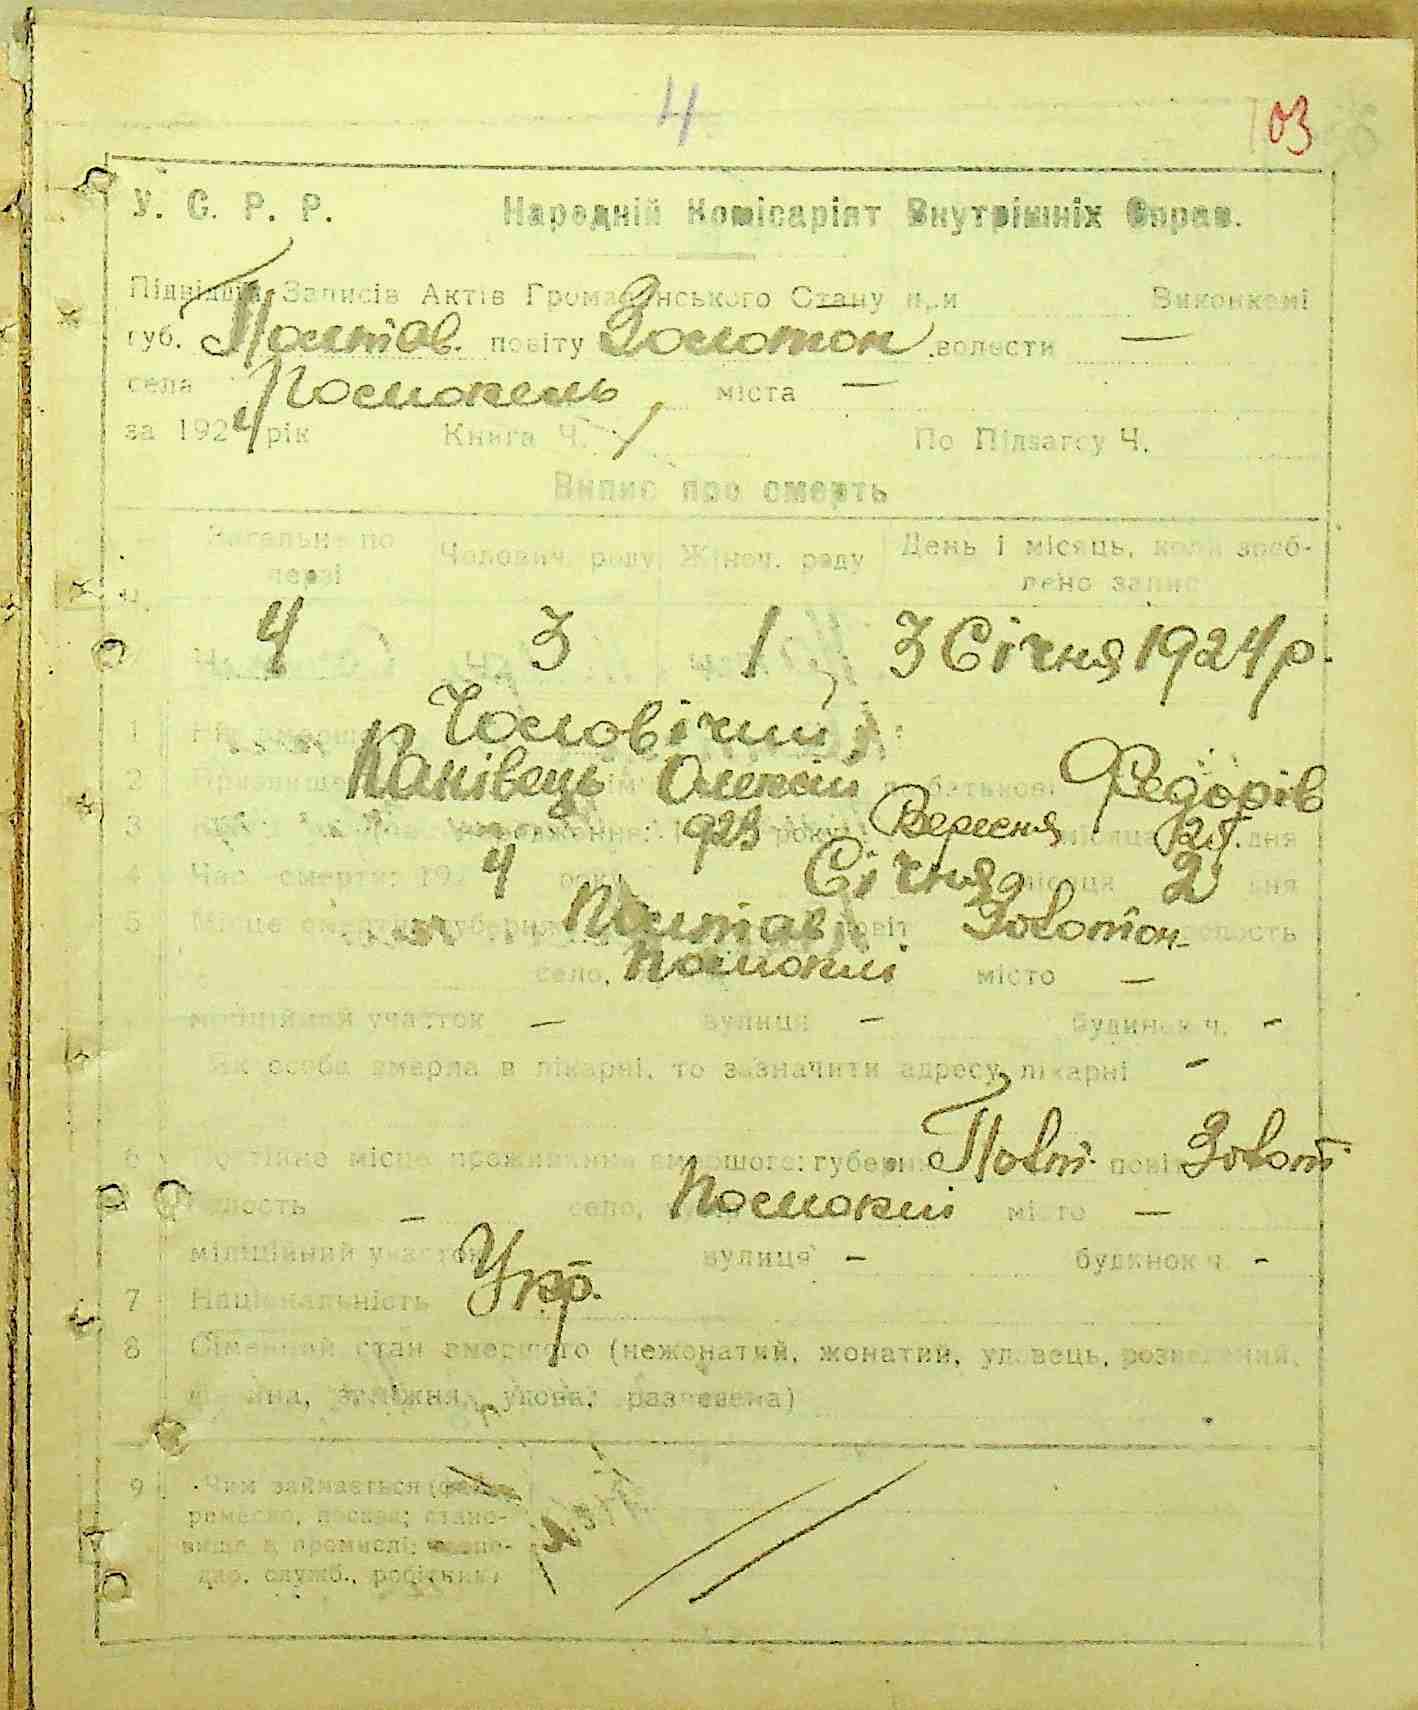 4
103
У. С. Р. Р. Народній Комісаріят Внутрішніх Справ.
Підвідділ Записів Актів Громадянського Стану при Виконкомі
губ. Полтав. повіту Золотон. волости —
села Посмокель міста —
за 1924 рік Книга Ч. 1 По Підзагсу Ч.
Випис про смерть
Загальне по Чоловіч. роду Жіноч. роду День і місяць, коли зроб-
лено запис
4 3 1 3 Січня 1924 р.
1 Чоловічий
2 Прізвище Канівець Олексій по батькові Федорів
3 народження: 1923 року Вересня місяця 25 дня
4 Час смерти: 1924 року Січня місяця 2 дня
5 Місце смерти: губерня Полтав повіт Золотон. волость
село, місто —
міліційний участок — вулиця — будинок ч. -
Як особа вмерла в лікарні, то зазначити адресу лікарні -
6 Постійне місце проживання вмершого: губерня Полт. повіт Золот.
волость — село, місто —
міліційний участок вулиця — будинок ч. -
7 Національність Укр.
8 Сімейний стан вмершого (нежонатий, жонатий, удовець, розведений,
дівчина, заміжня, удова, разведена)
9 Чим займається
ремесло, посада; стано-
вище в промислі:
служб., робітник)